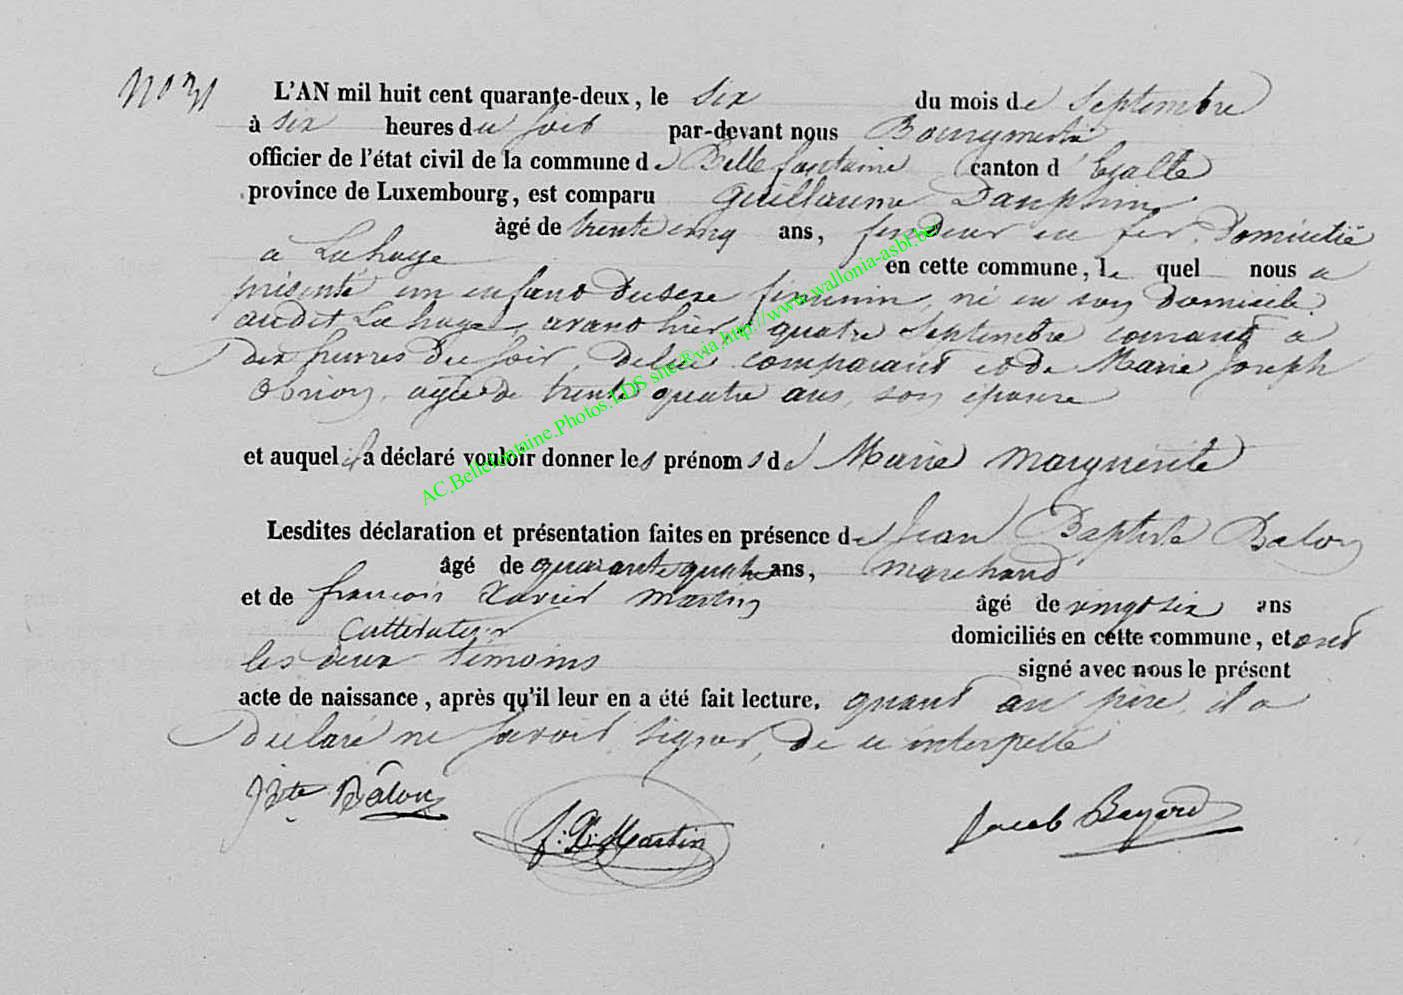 No 31
L'AN mil huit cent quarante-deux, le six du mois de Septembre
à six heures du soir par-devant nous Bourgmestre
officier de l'état civil de la commune de Bellefontaine canton d'Etalle
province de Luxembourg, est comparu Guillaume Dauphin
âgé de trente cinq ans, fendeur en fer, Domicilié
à Lahage en cette commune, le quel nous a
présenté un enfant du sexe féminin, né en son domicile
audit Lahage, avant hier, quatre Septembre courant à
dix heures du soir, de lui comparant et de Marie Joseph
agée de trente quatre ans, son épouse
et auquel il a déclaré vouloir donner les prénoms de Marie Marguerite
Lesdites déclaration et présentation faites en présence de Jean Baptiste Balon
âgé de quarante quatre ans, marchand
et de françois Xavier Martin âgé de vingt six ans
Cultivateur domiciliés en cette commune, et ont
les deux témoins signé avec nous le présent
acte de naissance, après qu'il leur en a été fait lecture. quant au père, il a
déclaré ne savoir signer, de ce interpellé
JBte Bâlon
f: X: Martin
Jacob Bayard
AC.Bellefontaine.Photos.LDS sne.®via.http://www.wallonia-asbl.be/